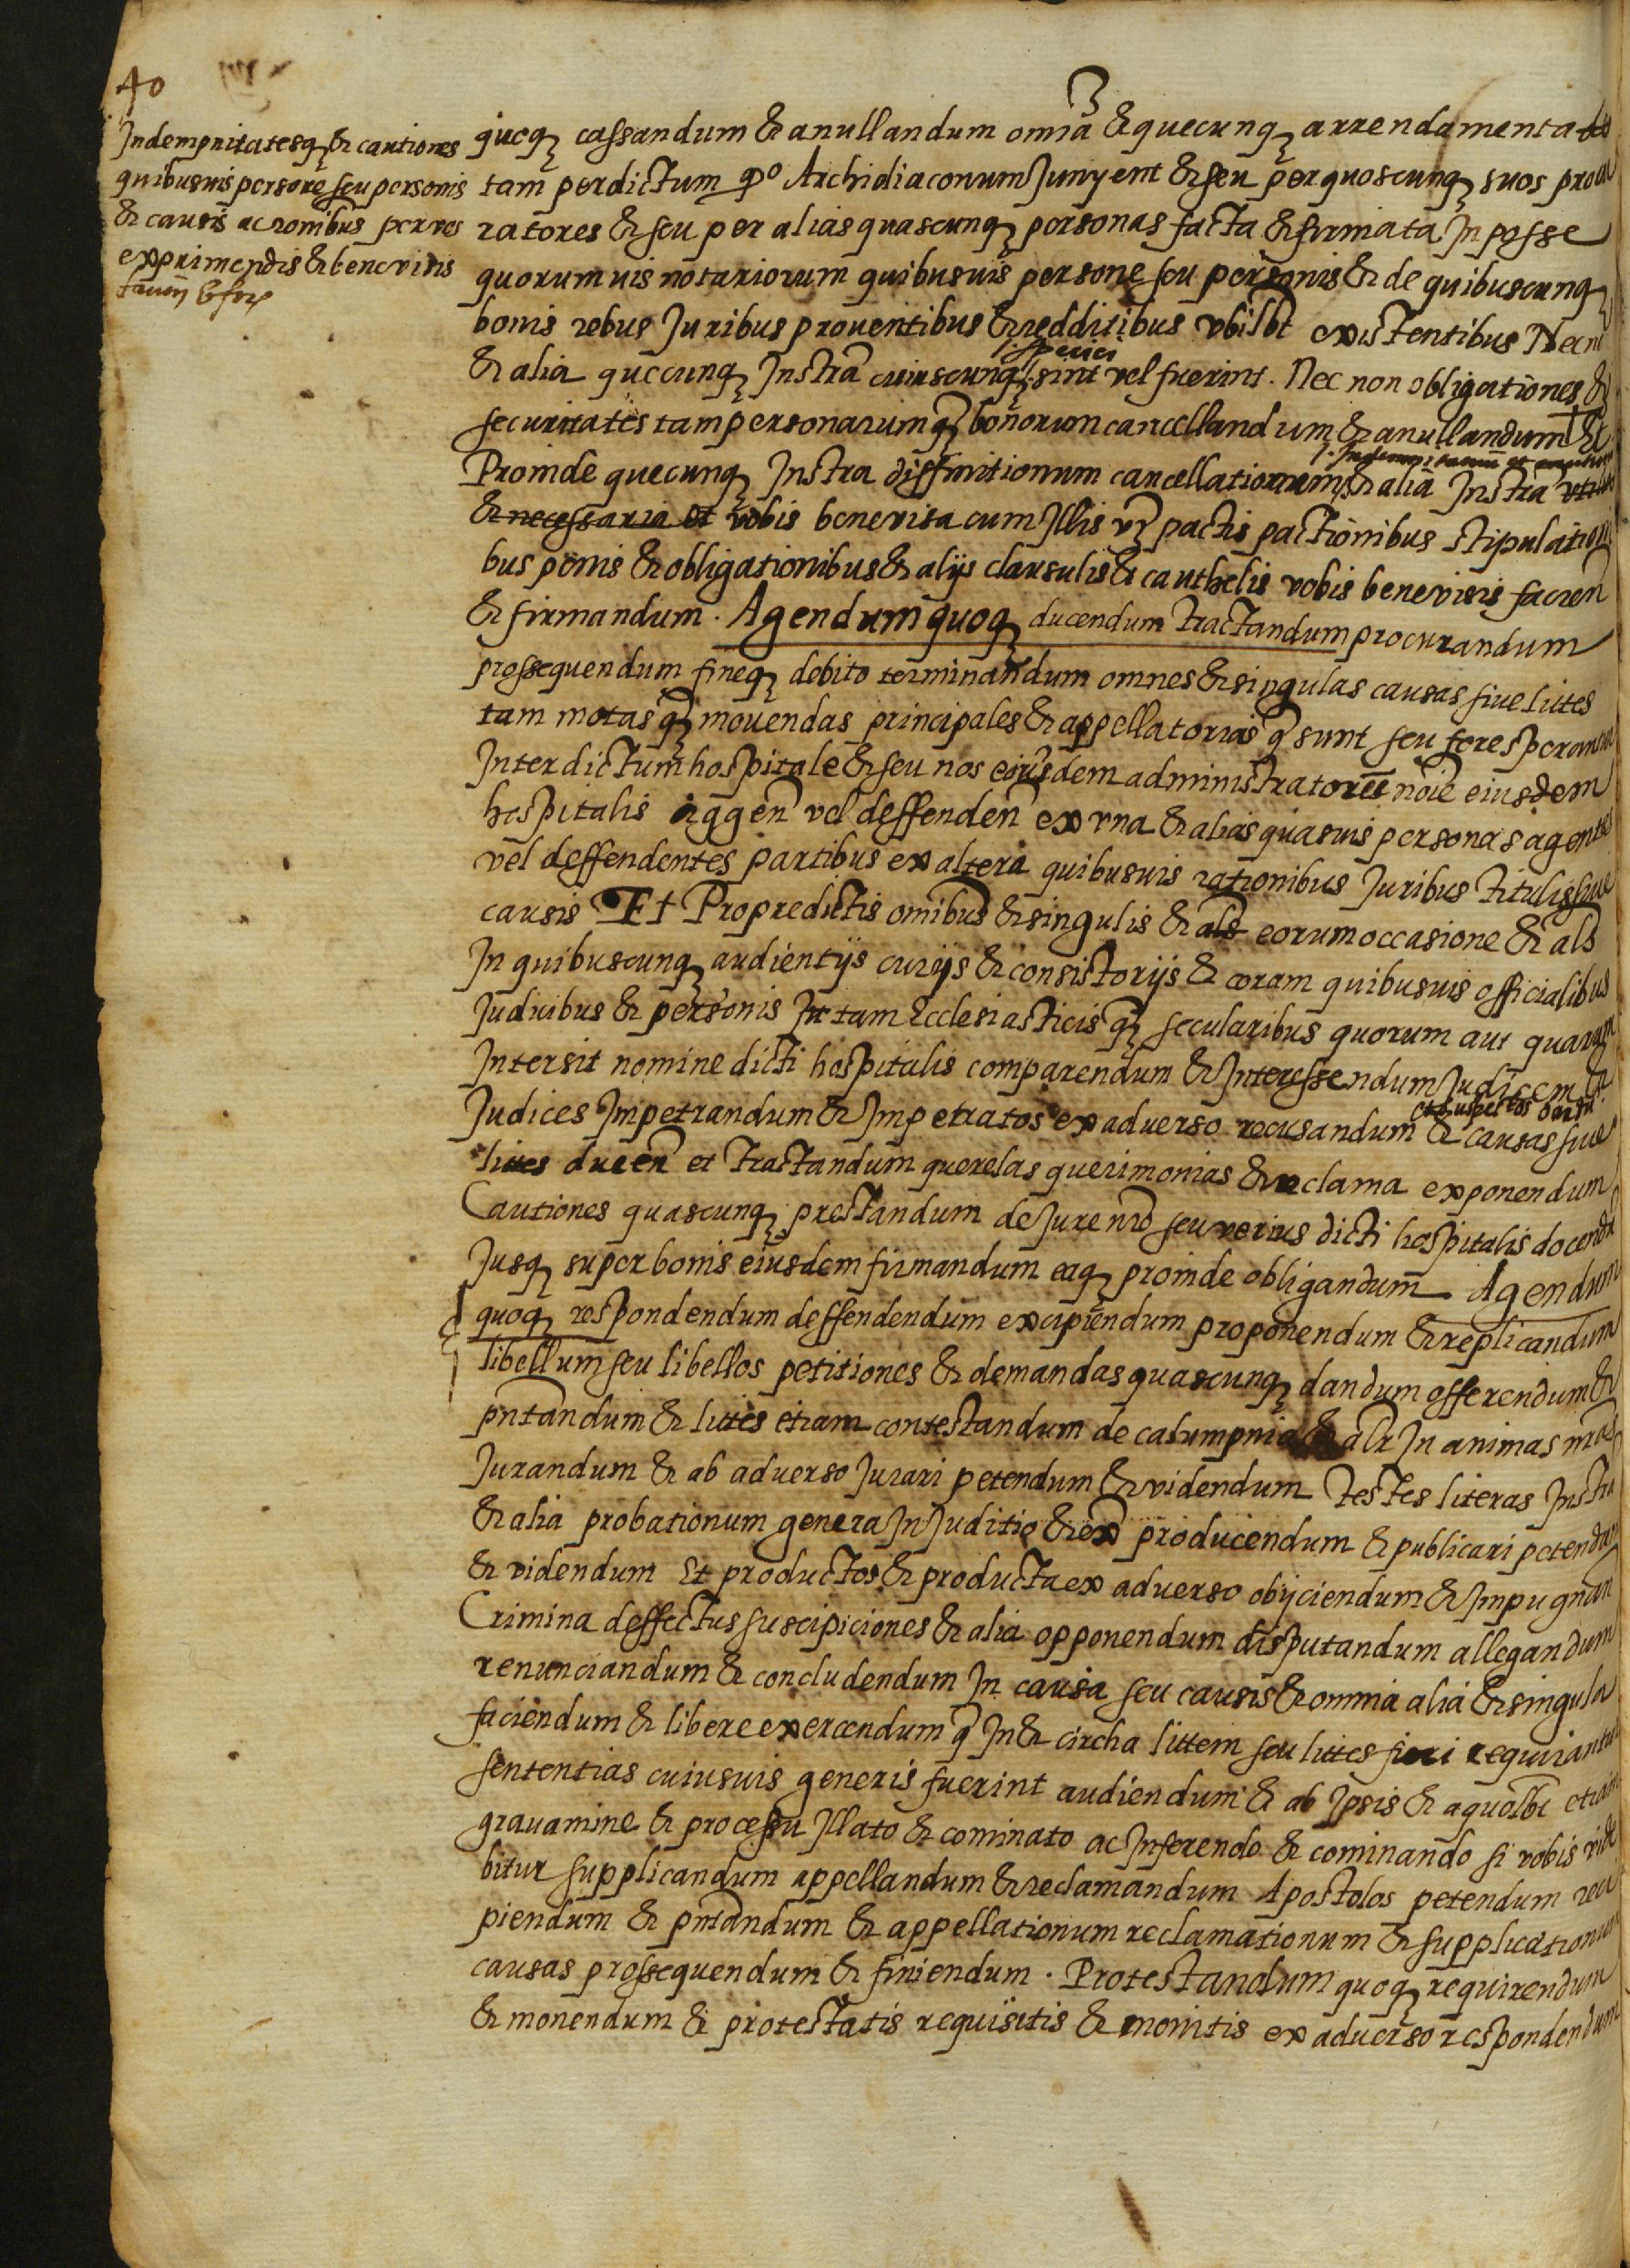 40
Indempnitatesq & cautiones
quibusuis persone seu personis
& causis ac ronibus per vos
exprimendis & benevisis
quoq cassandum & anullandum omia & quecunq arrendamenta
tam per dictum qo Archidiaconum Junyent & seu per quoscunq suos procu
ratores & seu per alias quascunq personas facta & firmata In posse
quorumuis notariorum quibusuis persone seu personis & de quibuscunq
bonis rebus Juribus prouentibus & redditibus vbilbt existentibus Necn
speciei
& alia quecunq Instra cuiuscunq sint vel fuerint. Nec non obligationes &
securitates tam personarum q bonorum cancellandum & anullandum Et
Indempnitatum et cautionum
Proinde quecunq Instra diffinitionum cancellationum & alia Instra vtilia
& necessaria et vobis benevisa cum Illis vz pactis pactionibus stipulationi
bus penis & obligationibus & alijs clausulis & cauthelis vobis benevisis facien
& firmandum. Agendum quoq ducendum tractandum procurandum
prossequendum fineq debito terminandum omnes & singulas causas siue littes
tam motas q mouendas principales & appellatorias q sunt seu fore sperantur
Inter dictum hospitale & seu nos eiusdem administratores noie eiusdem
hospitalis aggen vel deffenden ex vna & alias quasuis personas agentes
vel deffendentes partibus ex altera quibusuis rationibus Juribus titulis siue
causis Et Pro predictis omibus & singulis & als eorum occasione & als
In quibuscunq audientijs curijs & consistorijs & coram quibusuis officialibus
Judicibus & personis In tam Ecclesiasticis q secularibus quorum aut quarum
Intersit nomine dicti hospitalis comparendum & Interessendum Judicem &
et suspectos dandu
Judices Impetrandum & Impetratos ex aduerso recusandum & causas siue
littes ducen et tractandum querelas querimonias & reclama exponendum
Cautiones quascunq prestandum de Jure nro seu verius dicti hospitalis docendu
Jusq super bonis eiusdem firmandum eaq proinde obligandum Agendum
quoq respondendum deffendendum excipiendum proponendum & replicandum
libellum seu libellos petitiones & demandas quascunq dandum offerendum &
pntandum & littes etiam contestandum de calumpnia & alr In animas nras
Jurandum & ab aduerso Jurari petendum & videndum testes literas Instra
& alia probationum genera In Juditio & ex producendum & publicari petendum
& videndum Et productos & producta ex aduerso obijciendum & Impugnan
Crimina deffectus suscipiciones & alia opponendum disputandum allegandum
renunciandum & concludendum In causa seu causis & omnia alia & singula
faciendum & libere exercendum q In & circha littem seu littes fieri requirantur
sententias cuiusuis generis fuerint audiendum & ab Ipsis & a quolbt etiam
grauamine & processu Illato & cominato ac Inferendo & cominando si vobis vide
bitur supplicandum appellandum & reclamandum Apostolos petendum reci
piendum & pntandum & appellationum reclamationum & supplicationum
causas prossequendum & finiendum. Protestandum quoq requirendum
& monendum & protestatis requisitis & monitis ex aduerso respondendum